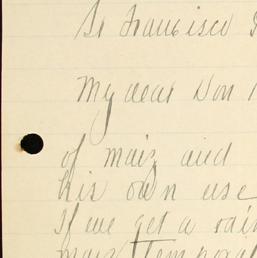 Sn Francisco
My dear Don
of maiz and
his own use
If we get a rain
maiz temporal